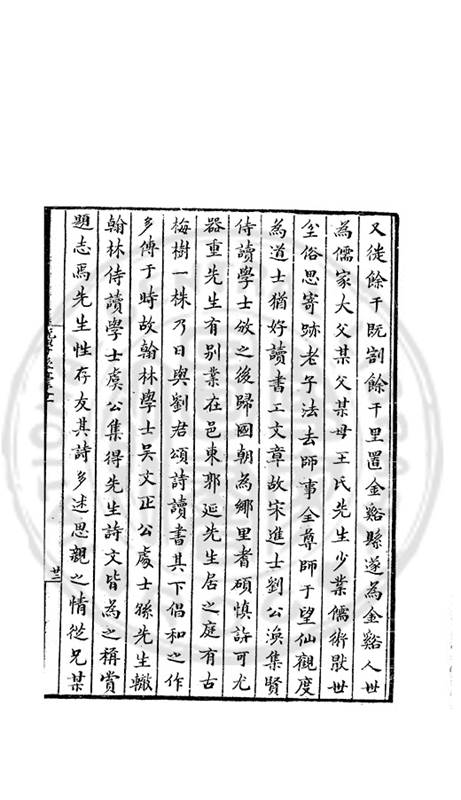 又徙餘干既割餘干里置金谿縣遂為金谿人世
為儒家大父某父某母王氏先生少業儒術厭世
坌俗思寄跡老子法去師事全尊師于望仙觀度
為道士猶好讀書工文章故宋進士劉公渙集賢
侍讀學士攽之後歸國朝為鄉里耆碩慎許可尤
器重先生有別業在邑東郭延先生居之庭有古
梅樹一株乃日與劉君頌詩讀書其下倡和之作
多傳于時故翰林學士吳文正公處士孫先生轍
翰林侍讀學士虞公集得先生詩文皆為之稱賞
題志焉先生性存友其詩多述思親之情從兄某
廿二